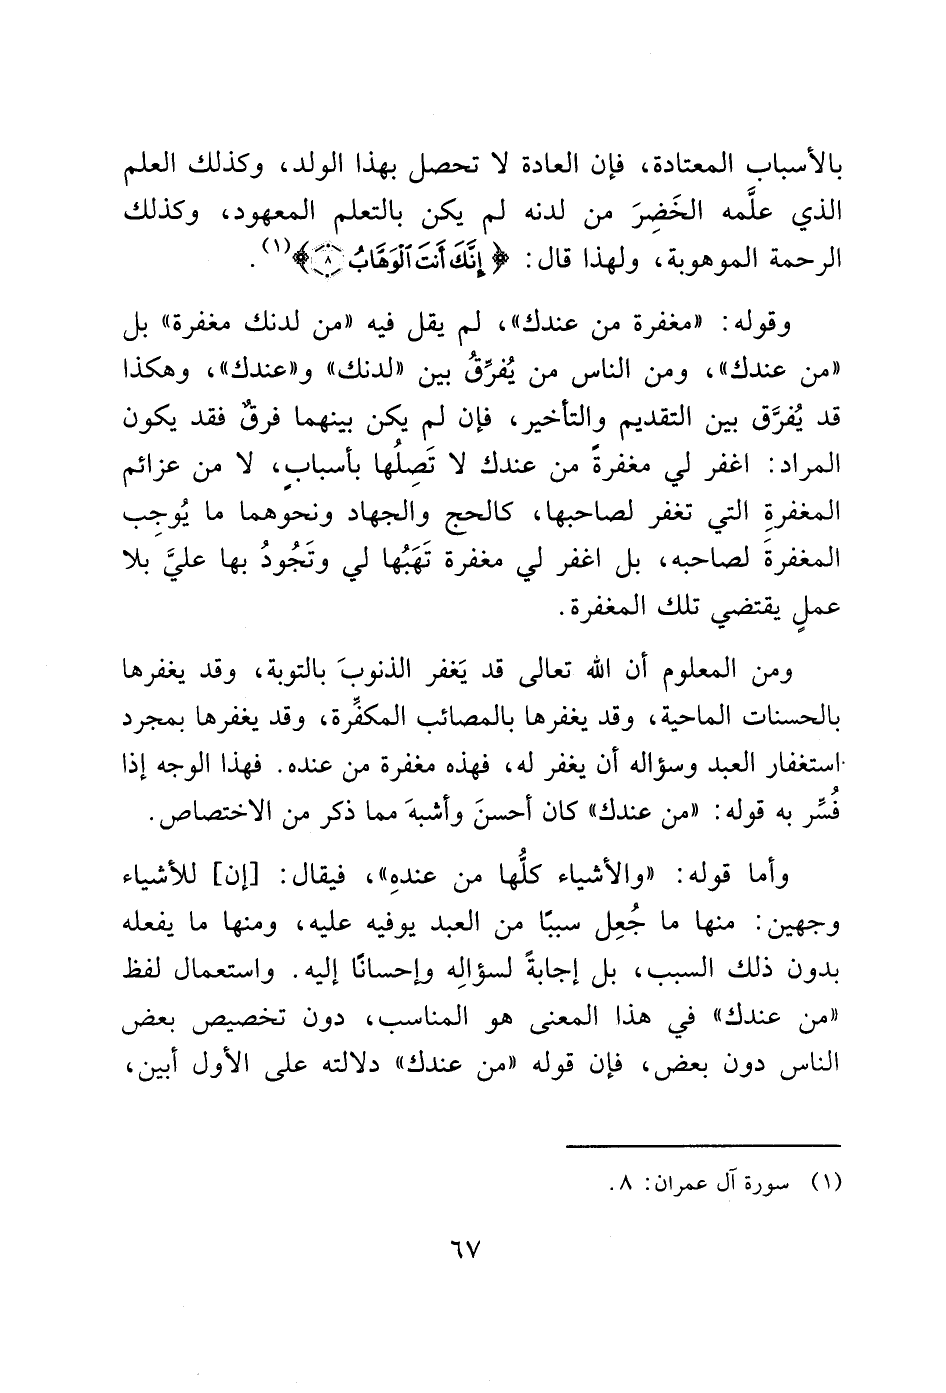 بالأسباب المعتادة، فإن العادة لا تحصل بهذا الولد، وكذلك العلم
الذي علَّمه الخَضِرَ من لدنه لم يكن بالتعلم المعهود، وكذلك
الرحمة الموهوبة، ولهذا قال: ﴿إِنَّكَ أَنتَ ٱلْوَهَّابُ ٨﴾(١).
وقوله: «مغفرة من عندك»، لم يقل فيه «من لدنك مغفرة» بل
«من عندك»، ومن الناس من يُفرِّقُ بين «لدنك» و«عندك»، وهكذا
قد يُفرَّق بين التقديم والتأخير، فإن لم يكن بينهما فرقٌ فقد يكون
المراد: اغفر لي مغفرةً من عندك لا تَصِلُها بأسبابٍ، لا من عزائم
المغفرةِ التي تغفر لصاحبها، كالحج والجهاد ونحوهما ما يُوجِب
المغفرةَ لصاحبه، بل اغفر لي مغفرة تَهَبُها لي وتَجُودُ بها عليَّ بلا
عملٍ يقتضي تلك المغفرة.
ومن المعلوم أن الله تعالى قد يَغفر الذنوبَ بالتوبة، وقد يغفرها
بالحسنات الماحية، وقد يغفرها بالمصائب المكفِّرة، وقد يغفرها بمجرد
استغفار العبد وسؤاله أن يغفر له، فهذه مغفرة من عنده. فهذا الوجه إذا
فُسِّر به قوله: «من عندك» كان أحسنَ وأشبهَ مما ذكر من الاختصاص.
وأما قوله: «والأشياء كلُّها من عندهِ»، فيقال: [إن] للأشياء
وجهين: منها ما جُعِل سببًا من العبد يوفيه عليه، ومنها ما يفعله
بدون ذلك السبب، بل إجابةً لسؤالِه وإحسانًا إليه. واستعمال لفظ
«من عندك» في هذا المعنى هو المناسب، دون تخصيص بعض
الناس دون بعض، فإن قوله «من عندك» دلالته على الأول أبين،
(١) سورة آل عمران: ٨.
٦٧